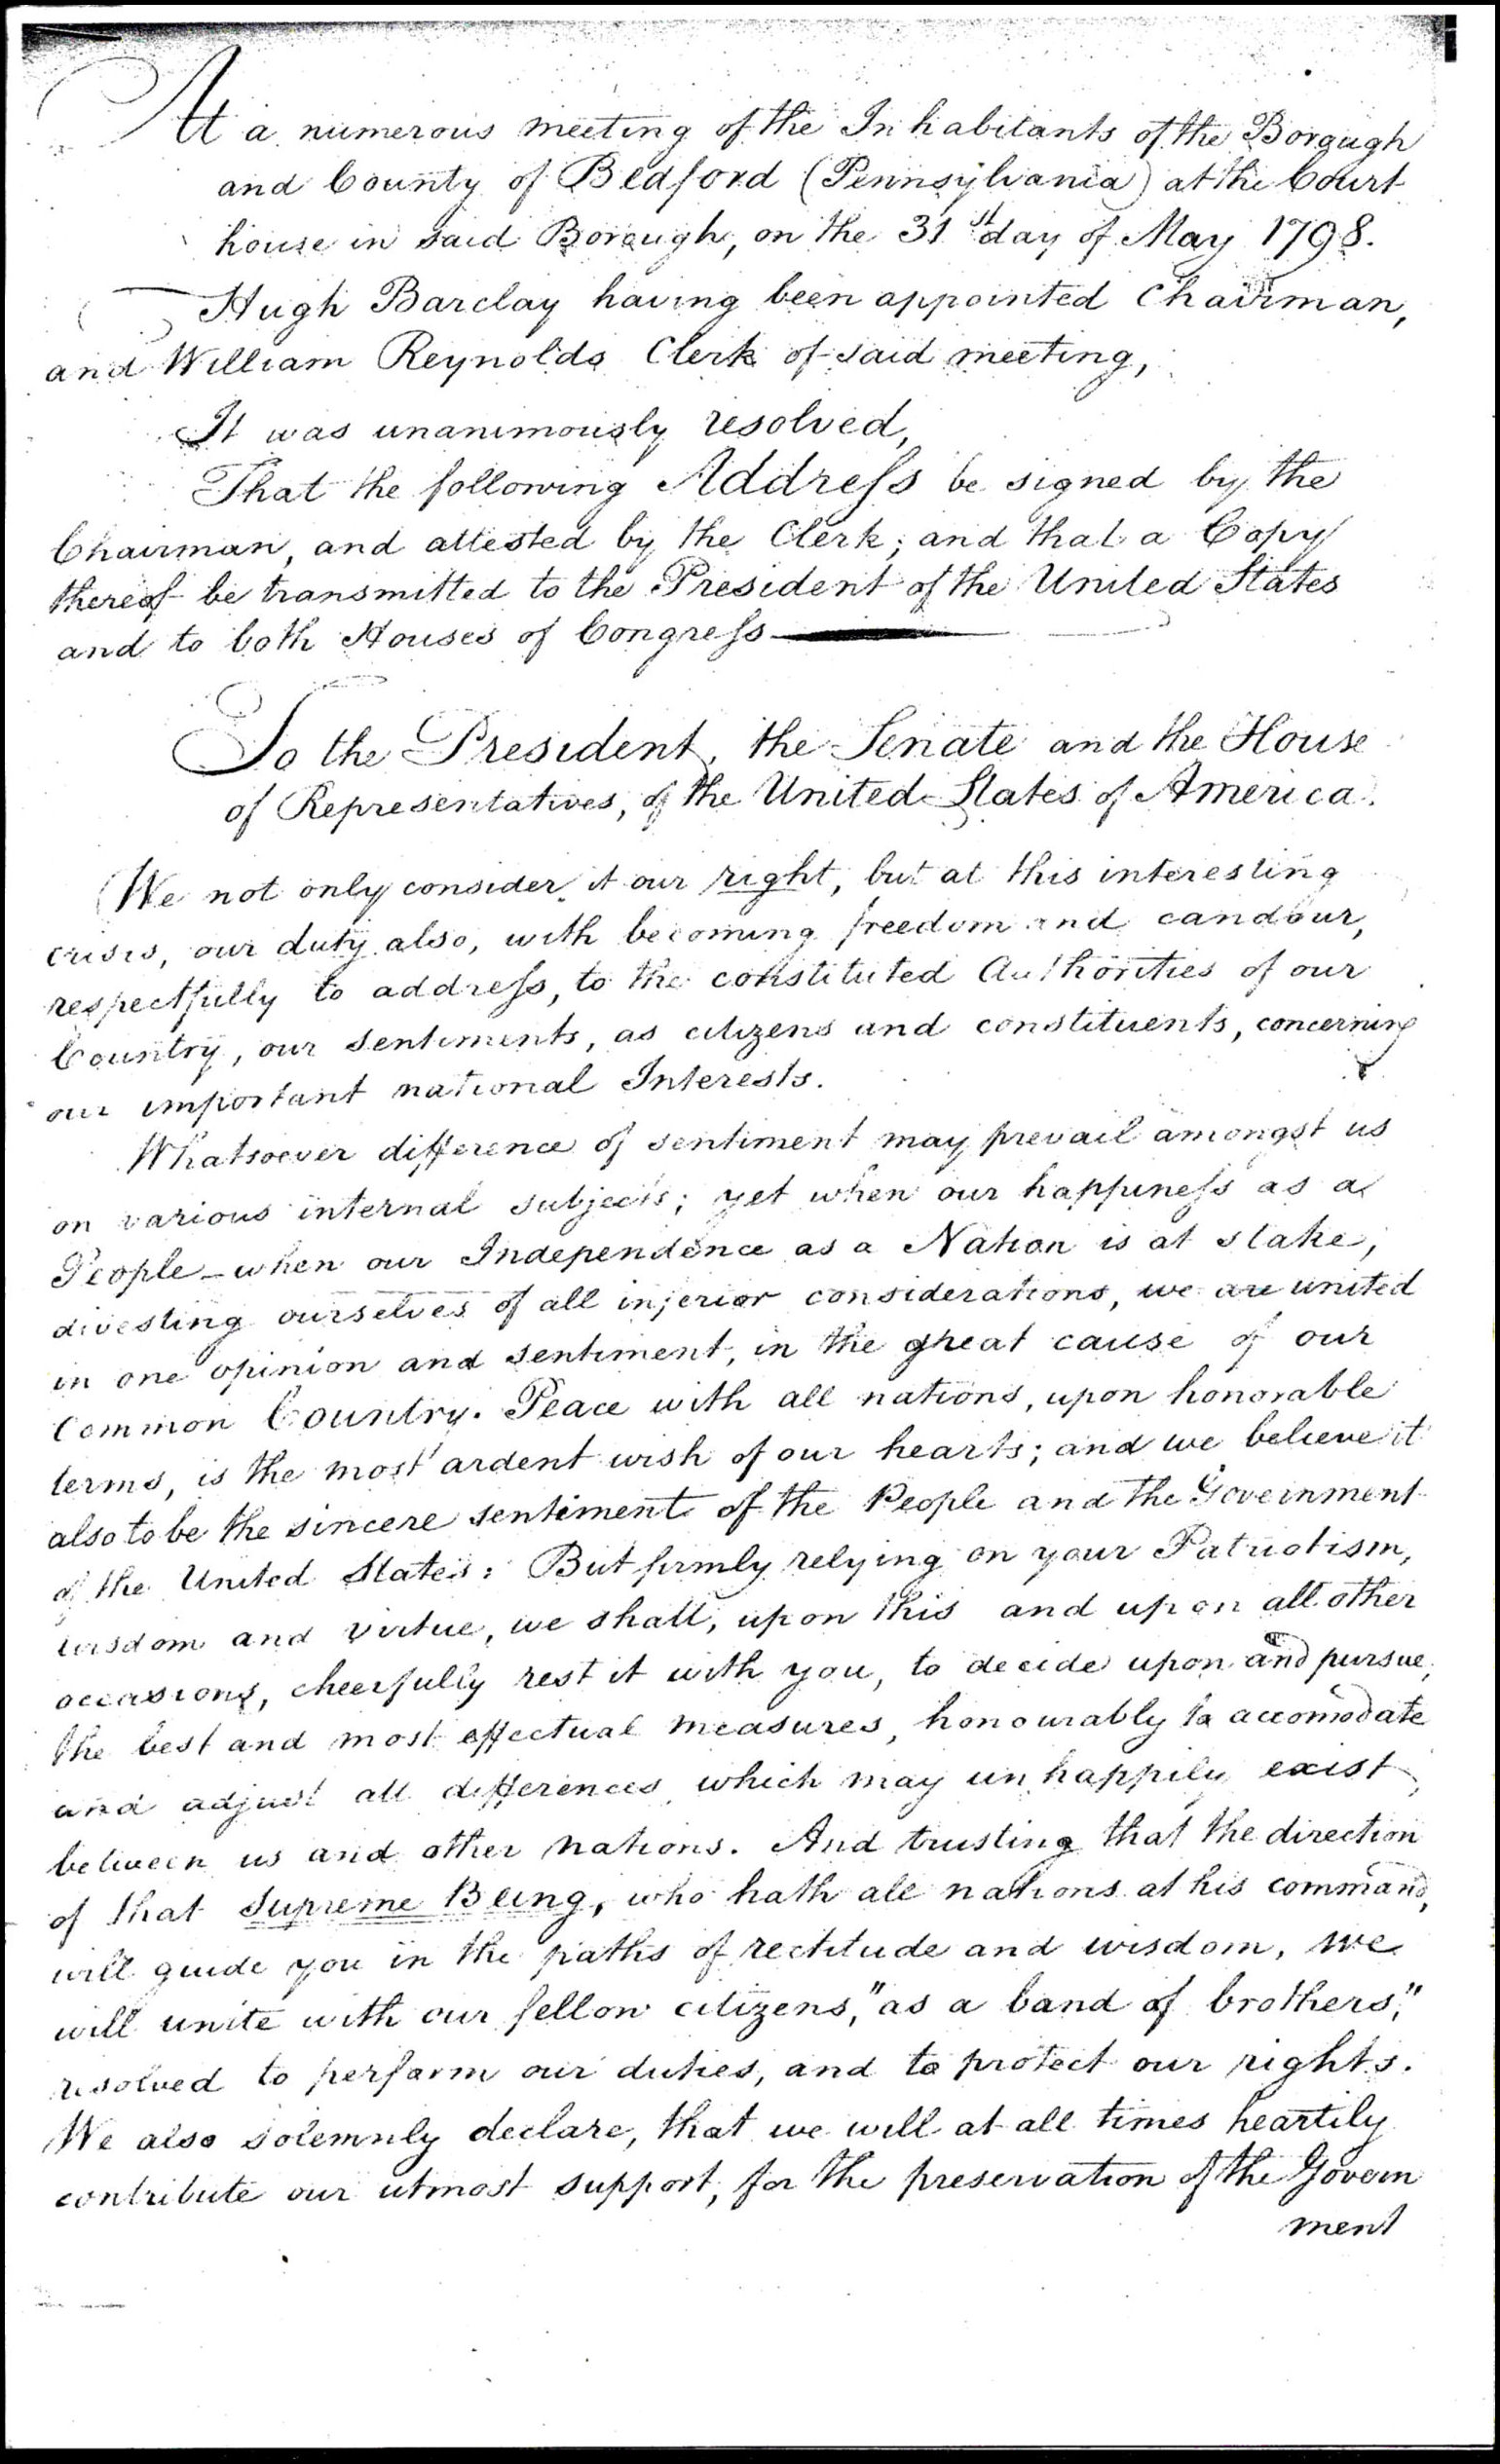 At a numerous meeting of the Inhabitants of the Borough
and County of Bedford (Pennsylvania) at the Court
house in said Borough, on the 31st day of May 1798.
Hugh Barclay having been appointed Chairman,
and William Reynolds Clerk of said meeting,
It was unanimously resolved,
That the following Address be signed by the
Chairman, and attested by the Clerk; and that a Copy
thereof be transmitted to the President of the United States
and to both Houses of Congress
To the President, the Senate and the House
of Representatives, of the United States of America.
We not only consider it our right, but at this interesting
crisis, our duty also, with becoming freedom and candour,
respectfully to address, to the constituted Authorities of our
Country, our sentiments, as citizens and constituents, concerning
our important national Interests.
Whatsoever difference of sentiment may prevail amongst us
on various internal subjects; yet when our happiness as a
People - when our Independence as a Nation is at stake,
divesting ourselves of all inferior considerations, we are united
in one opinion and sentiment, in the great cause of our
Common Country. Peace with all nations, upon honorable
terms, is the most ardent wish of our hearts; and we believe it
also to be the sincere sentiment of the People and the Government
of the United States: But firmly relying on your Patriotism,
wisdom and virtue, we shall, upon this and upon all other
occasions, cheerfully rest it with you, to decide upon and pursue,
the best and most effectual measures, honourably to accomodate
and adjust all differences which may unhappily exist
between us and other nations. And trusting that the direction
of that Supreme Being, who hath all nations at his command,
will guide you in the paths of rectitude and wisdom, we
will unite with our fellow citizens, "as a band of brothers,"
resolved to perform our duties, and to protect our rights.
We also solemnly declare, that we will at all times heartily
contribute our utmost support, for the preservation of the Govern
ment